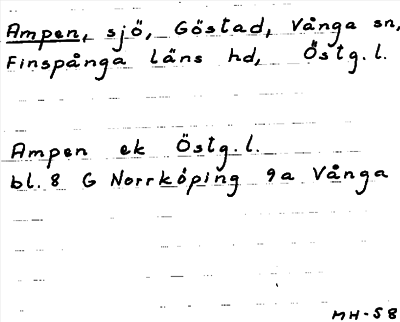 Ampen, sjö, Göstad, Vånga sn,
Finspånga läns hd, Östg. l.
Ampen ek Östg. l.
bl. 8 G Norrköping 9a Vånga
MH-58